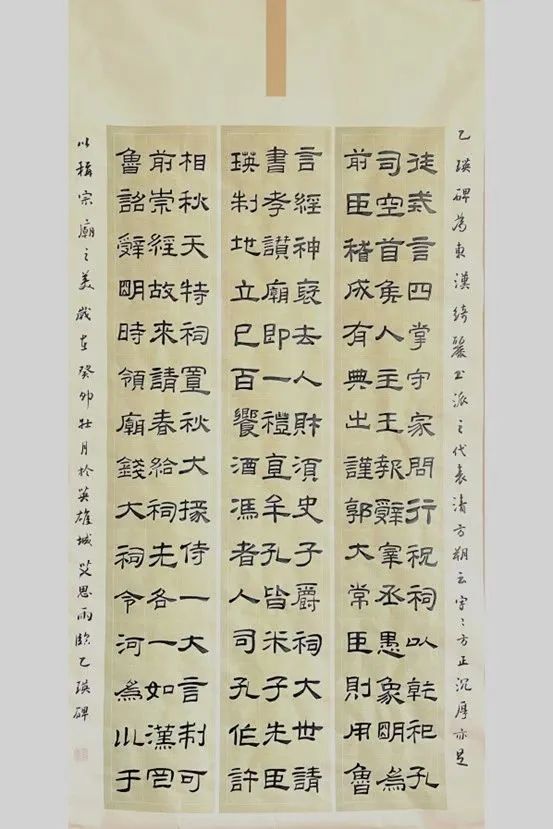 乙瑛碑為東漢綺麗书派之代表清方朔云字々方正沉厚亦足
徒式言四掌守家問行祝祠以乾祀孔
司空首侯人主王報辭宰丞愚象明為
前臣稽成有典出謹郭大常臣則用魯
言經神裦去人財須史子爵祠大世請
書孝讃廟即一禮直羊孔皆米子先臣
瑛制地立已百饗酒馮者人司孔伯許
相秋天特祠置秋大掾侍一大言制可
前崇經故來請春給祠先各一如漢罔
魯詔辭明時領廟錢大祠令河為小于
以稱宗廟之美歲在癸卯壮月於英雄城艾思雨臨乙瑛碑